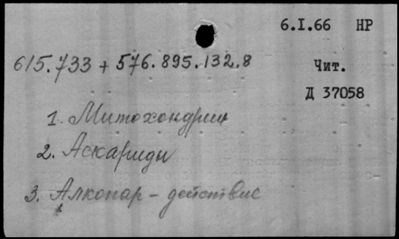 6.I.66 НР
615.733 + 576.895.132.8
Чит.
Д 37058
1. Митохондрии
2. Аскариди
3. Алкопар - действие